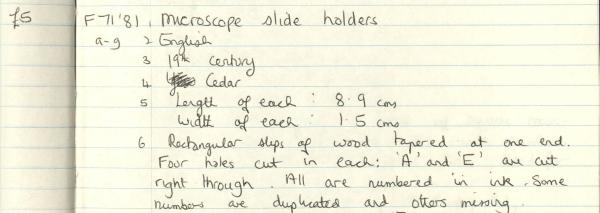 £5 F71'81. Microscope slide holders
a-g 2 English
3 19th century
4 Cedar
5 Length of each : 8.9 cms
Width of each : 1.5 cms
6 Rectangular slips of wood tapered at one end.
Four holes cut in each; 'A' and 'E' are cut
right through. All are numbered in ink. Some
numbers are duplicated and others missing.